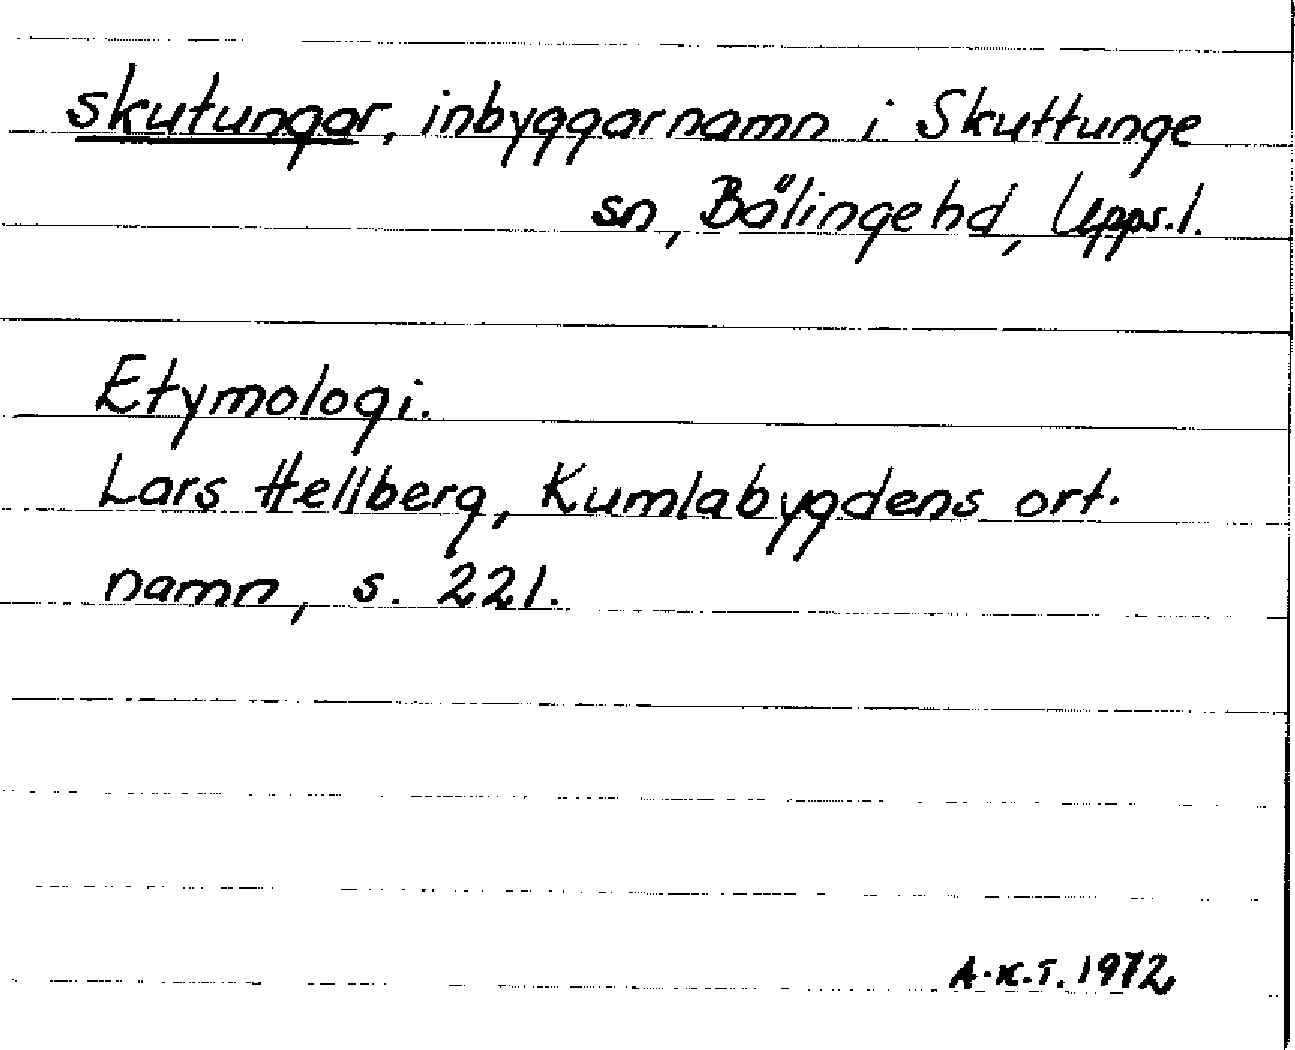 skutungar, inbyggarnamn i Skuttunge
sn, Bälinge hd, Upps.l.
Etymologi.
Lars Hellberg, Kumlabygdens ort-
namn, s. 221.
A.K.T. 1972